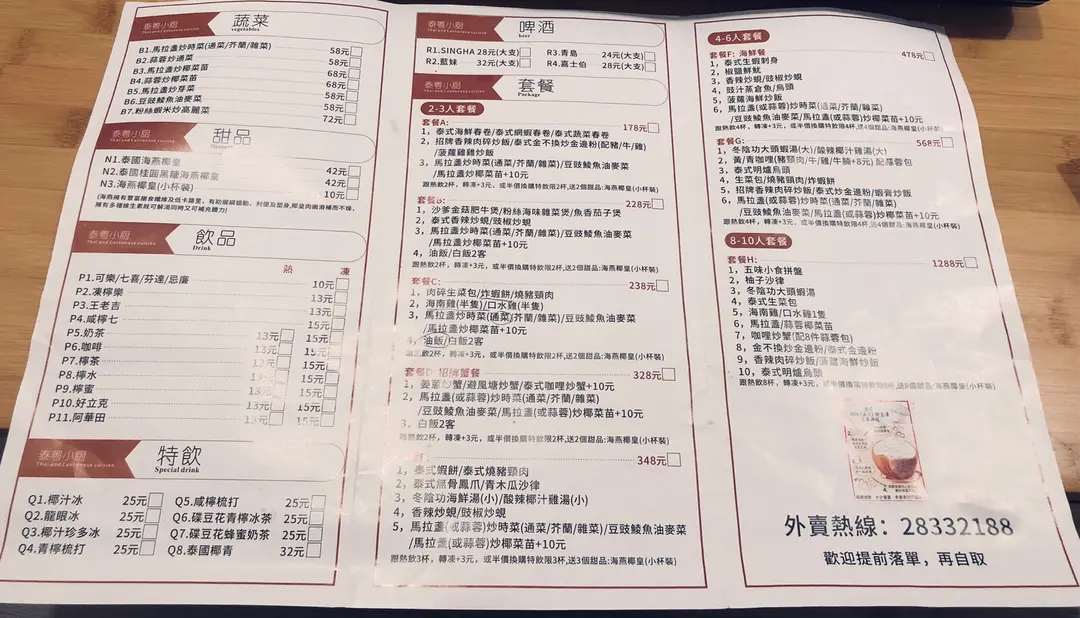 泰粵小厨
Thai and Cantonese cuisine
蔬菜
vegetables
B1.馬拉盞炒時菜(通菜/芥蘭/雜菜) 58元
B2.蒜蓉炒通菜 58元
B3.馬拉盞炒椰菜苗 68元
B4.蒜蓉炒椰菜苗 68元
B5.馬拉盞炒芽菜 58元
B6.豆豉鯪魚油麥菜 58元
B7.粉絲蝦米炒高麗菜 72元
泰粵小厨
Thai and Cantonese cuisine
甜品
Dessert
N1.泰國海燕椰皇 42元
N2.泰國桂圓黑糖海燕椰皇 42元
N3.海燕椰皇(小杯裝) 10元
泰粵小厨
Thai and Cantonese cuisine
飲品
Drink
熱 凍
P1.可樂/七喜/芬達/忌廉 10元
P2.凍檸樂 13元
P3.王老吉 13元
P4.咸檸七 15元
P5.奶茶 13元 15元
P6.咖啡 13元 15元
P7.檸茶 13元 15元
P8.檸水 15元
P9.檸蜜 13元 15元
P10.好立克 13元 15元
P11.阿華田 13元 15元
泰粵小厨
Thai and Cantonese cuisine
特飲
Special drink
Q1.椰汁冰 25元
Q2.龍眼冰 25元
Q3.椰汁珍多冰 25元
Q4.青檸梳打 25元
Q5.咸檸梳打 25元
Q6.碟豆花青檸冰茶 25元
Q7.碟豆花蜂蜜奶茶 25元
Q8.泰國椰青 32元
泰粵小厨
Thai and Cantonese cuisine
啤酒
beer
R1.SINGHA 28元(大支) R3.青島 24元(大支)
R2.藍妹 32元(大支) R4.嘉士伯 28元(大支)
泰粵小厨
Thai and Cantonese cuisine
套餐
Package
2-3人套餐
套餐A: 178元
1，泰式海鮮春卷/泰式網蝦春卷/泰式蔬菜春卷
2，招牌香辣肉碎炒飯/泰式金不換炒金邊粉(配豬/牛/雞)
/菠蘿雞雞炒飯
3，馬拉盞炒時菜(通菜/芥蘭/雜菜)/豆豉鯪魚油麥菜
/馬拉盞炒椰菜苗+10元
跟熱飲2杯，轉凍+3元，或半價換購特飲限2杯,送2個甜品:海燕椰皇(小杯裝)
套餐B: 228元
1，沙爹金菇肥牛煲/粉絲海味雜菜煲/魚香茄子煲
2，泰式香辣炒蜆/豉椒炒蜆
3，馬拉盞炒時菜(通菜/芥蘭/雜菜)/豆豉鯪魚油麥菜
/馬拉盞炒椰菜苗+10元
4，油飯/白飯2客
跟熱飲2杯，轉凍+3元，或半價換購特飲限2杯,送2個甜品:海燕椰皇(小杯裝)
套餐C: 238元
1，肉碎生菜包/炸蝦餅/燒豬頸肉
2，海南雞(半隻)/口水雞(半隻)
3，馬拉盞炒時菜(通菜/芥蘭/雜菜)/豆豉鯪魚油麥菜
/馬拉盞炒椰菜苗+10元
4，油飯/白飯2客
跟熱飲2杯，轉凍+3元，或半價換購特飲限2杯,送2個甜品:海燕椰皇(小杯裝)
套餐D: 招牌蟹餐 328元
1，姜蔥炒蟹/避風塘炒蟹/泰式咖哩炒蟹+10元
2，馬拉盞(或蒜蓉)炒時菜(通菜/芥蘭/雜菜)
/豆豉鯪魚油麥菜/馬拉盞(或蒜蓉)炒椰菜苗+10元
3，白飯2客
跟熱飲2杯，轉凍+3元，或半價換購特飲限2杯,送2個甜品:海燕椰皇(小杯裝)
348元
1，泰式蝦餅/泰式燒豬頸肉
2，泰式無骨鳳爪/青木瓜沙律
3，冬陰功海鮮湯(小)/酸辣椰汁雞湯(小)
4，香辣炒蜆/豉椒炒蜆
5，馬拉盞(或蒜蓉)炒時菜(通菜/芥蘭/雜菜)/豆豉鯪魚油麥菜
/馬拉盞(或蒜蓉)炒椰菜苗+10元
跟熱飲3杯，轉凍+3元，或半價換購特飲限3杯,送3個甜品:海燕椰皇(小杯裝)
4-6人套餐
套餐F: 海鮮餐 478元
1，泰式生蝦刺身
2，椒鹽鮮魷
3，香辣炒蜆/豉椒炒蜆
4，豉汁蒸倉魚/烏頭
5，菠蘿海鮮炒飯
6，馬拉盞(或蒜蓉)炒時菜(通菜/芥蘭/雜菜)
/豆豉鯪魚油麥菜/馬拉盞(或蒜蓉)炒椰菜苗+10元
跟熱飲4杯，轉凍+3元，或半價換購特飲限4杯,送4個甜品:海燕椰皇(小杯裝)
套餐G: 568元
1，冬陰功大頭蝦湯(大)/酸辣椰汁雞湯(大)
2，黃/青咖哩(豬頸肉/牛/雞/牛腩+8元) 配蒜蓉包
3，泰式明爐烏頭
4，生菜包/燒豬頸肉/炸蝦餅
5，招牌香辣肉碎炒飯/泰式炒金邊粉/蝦膏炒飯
6，馬拉盞(或蒜蓉)炒時菜(通菜/芥蘭/雜菜)
/豆豉鯪魚油麥菜/馬拉盞(或蒜蓉)炒椰菜苗+10元
跟熱飲4杯，轉凍+3元，或半價換購特飲限4杯,送4個甜品:海燕椰皇(小杯裝)
8-10人套餐
套餐H: 1288元
1，五味小食拼盤
2，柚子沙律
3，冬陰功大頭蝦湯
4，泰式生菜包
5，海南雞/口水雞1隻
6，馬拉盞/蒜蓉椰菜苗
7，咖哩炒蟹(配8件蒜蓉包)
8，金不換炒金邊粉/泰式金邊粉
9，香辣肉碎炒飯/菠蘿海鮮炒飯
10，泰式明爐烏頭
跟熱飲8杯，轉凍+3元，或半價換購特飲限8杯,送8個甜品:海燕椰皇(小杯裝)
外賣熱線：28332188
歡迎提前落單，再自取